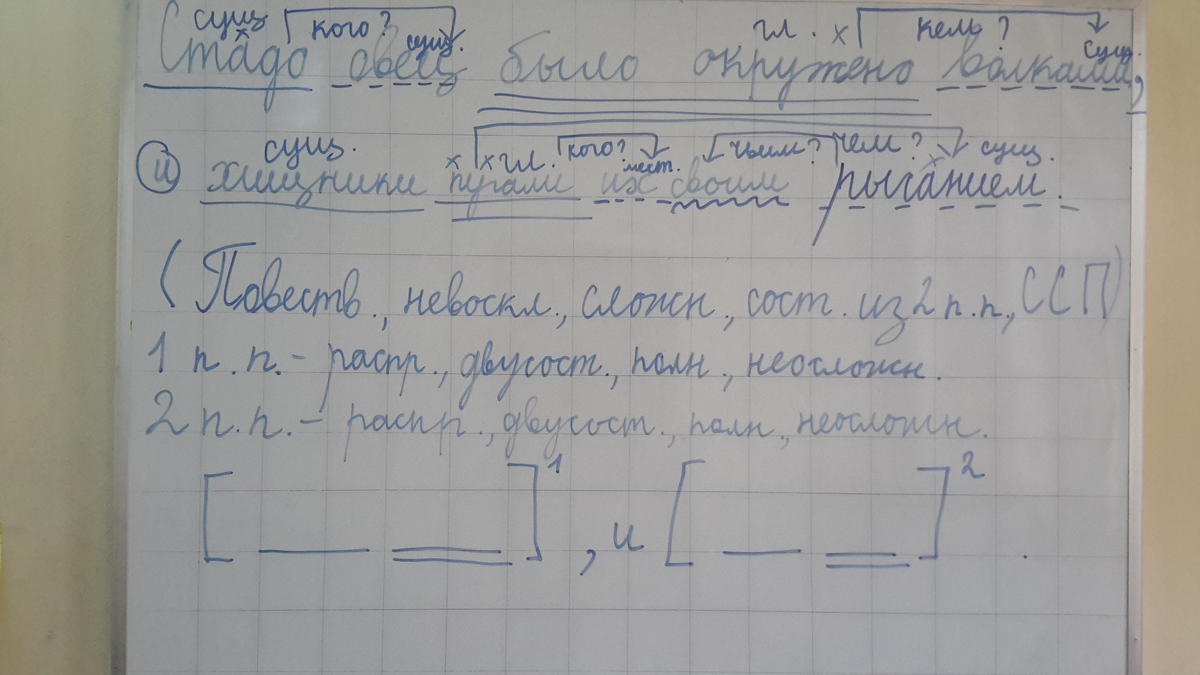 сущ кого? сущ. гл. х кем? сущ.
Стадо овец было окружено волками,
сущ. х х гл. кого? мест. чьим? чем? сущ.
и хищники пугали их своим рыганием.
(Повеств., невоскл., сложн., сост. из 2 п.п., ССП)
1 п.п. - распр., двусост., полн., неосложн.
2 п.п. - распр., двусост., полн., неосложн.
[ ]1 , и [ ]2 .